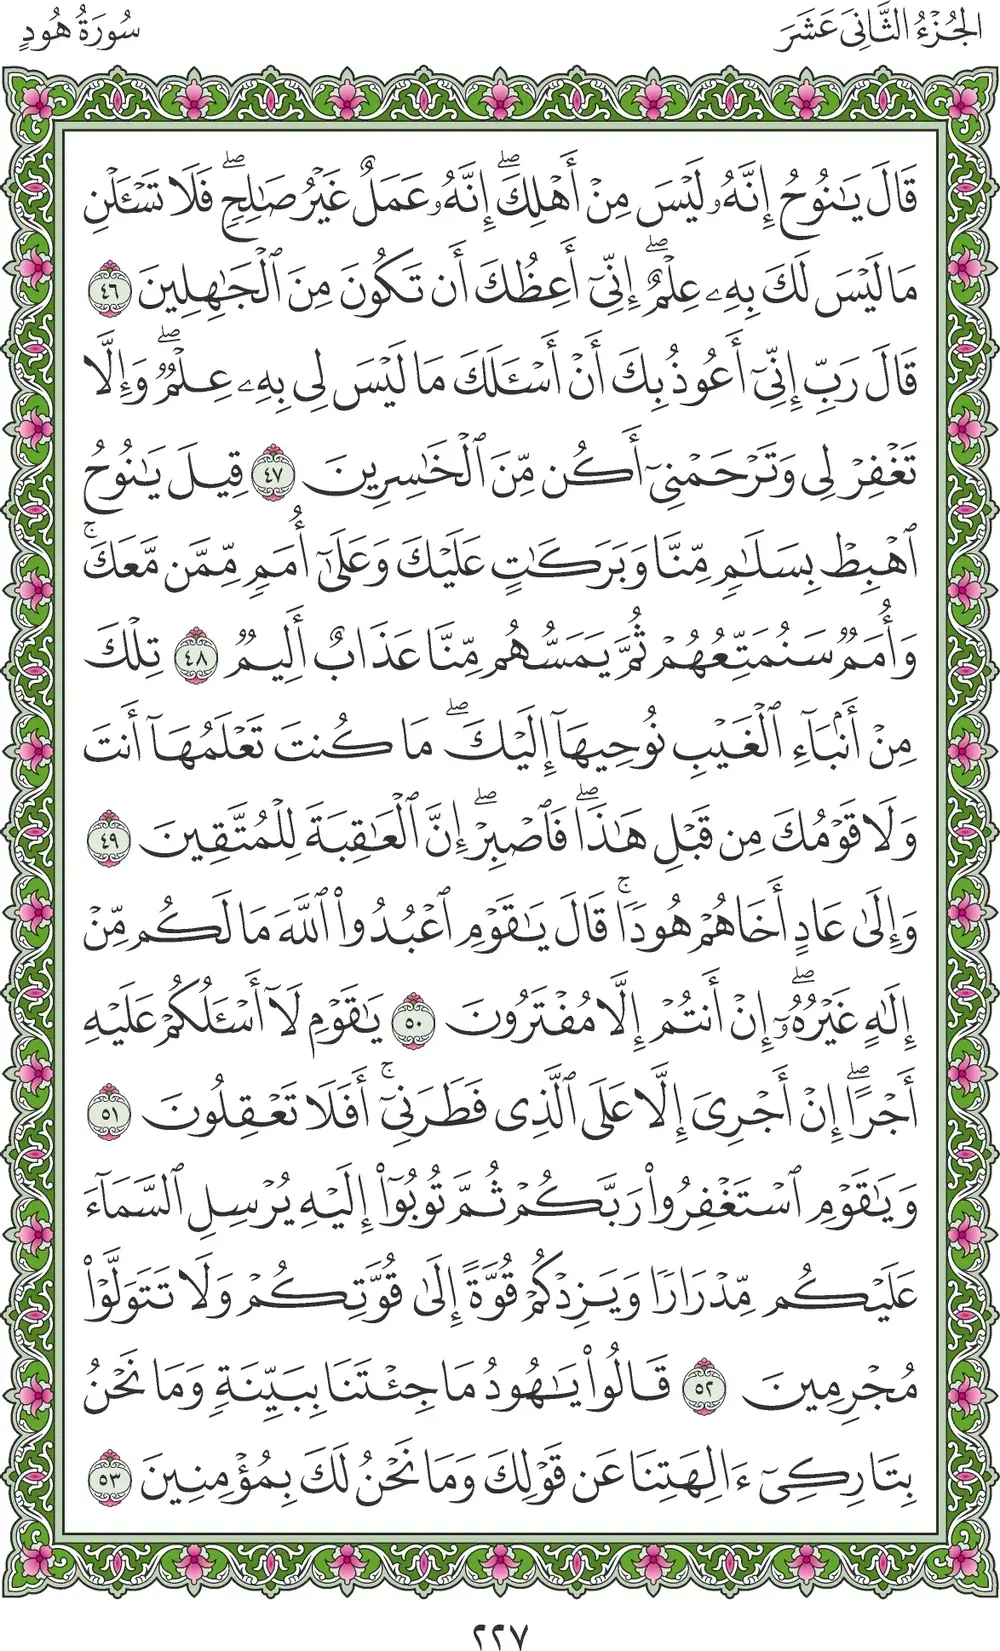 الجُزْءُ الثَّانِىَ عَشَرَ
سُورَةُ هُودٍ
قَالَ يَـٰنُوحُ إِنَّهُۥ لَيْسَ مِنْ أَهْلِكَۖ إِنَّهُۥ عَمَلٌ غَيْرُ صَـٰلِحٖۖ فَلَا تَسْـَٔلْنِ
مَا لَيْسَ لَكَ بِهِۦ عِلْمٌۖ إِنِّىٓ أَعِظُكَ أَن تَكُونَ مِنَ ٱلْجَـٰهِلِينَ ٤٦
قَالَ رَبِّ إِنِّىٓ أَعُوذُ بِكَ أَنْ أَسْـَٔلَكَ مَا لَيْسَ لِى بِهِۦ عِلْمٌۖ وَإِلَّا
تَغْفِرْ لِى وَتَرْحَمْنِىٓ أَكُن مِّنَ ٱلْخَـٰسِرِينَ ٤٧ قِيلَ يَـٰنُوحُ
ٱهْبِطْ بِسَلَـٰمٍ مِّنَّا وَبَرَكَـٰتٍ عَلَيْكَ وَعَلَىٰٓ أُمَمٍ مِّمَّن مَّعَكَۚ
وَأُمَمٌ سَنُمَتِّعُهُمْ ثُمَّ يَمَسُّهُم مِّنَّا عَذَابٌ أَلِيمٌ ٤٨ تِلْكَ
مِنْ أَنۢبَآءِ ٱلْغَيْبِ نُوحِيهَآ إِلَيْكَۖ مَا كُنتَ تَعْلَمُهَآ أَنتَ
وَلَا قَوْمُكَ مِن قَبْلِ هَـٰذَاۖ فَٱصْبِرْۖ إِنَّ ٱلْعَـٰقِبَةَ لِلْمُتَّقِينَ ٤٩
وَإِلَىٰ عَادٍ أَخَاهُمْ هُودًاۚ قَالَ يَـٰقَوْمِ ٱعْبُدُوا۟ ٱللَّهَ مَا لَكُم مِّنْ
إِلَـٰهٍ غَيْرُهُۥٓۖ إِنْ أَنتُمْ إِلَّا مُفْتَرُونَ ٥٠ يَـٰقَوْمِ لَآ أَسْـَٔلُكُمْ عَلَيْهِ
أَجْرًاۖ إِنْ أَجْرِىَ إِلَّا عَلَى ٱلَّذِى فَطَرَنِىٓۚ أَفَلَا تَعْقِلُونَ ٥١
وَيَـٰقَوْمِ ٱسْتَغْفِرُوا۟ رَبَّكُمْ ثُمَّ تُوبُوٓا۟ إِلَيْهِ يُرْسِلِ ٱلسَّمَآءَ
عَلَيْكُم مِّدْرَارًا وَيَزِدْكُمْ قُوَّةً إِلَىٰ قُوَّتِكُمْ وَلَا تَتَوَلَّوْا۟
مُجْرِمِينَ ٥٢ قَالُوا۟ يَـٰهُودُ مَا جِئْتَنَا بِبَيِّنَةٍ وَمَا نَحْنُ
بِتَارِكِىٓ ءَالِهَتِنَا عَن قَوْلِكَ وَمَا نَحْنُ لَكَ بِمُؤْمِنِينَ ٥٣
٢٢٧